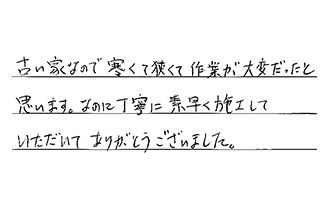 古い家なので寒くて狭くて作業が大変だったと
思います。なのに丁寧に素早く施工して
いただいてありがとうございました。